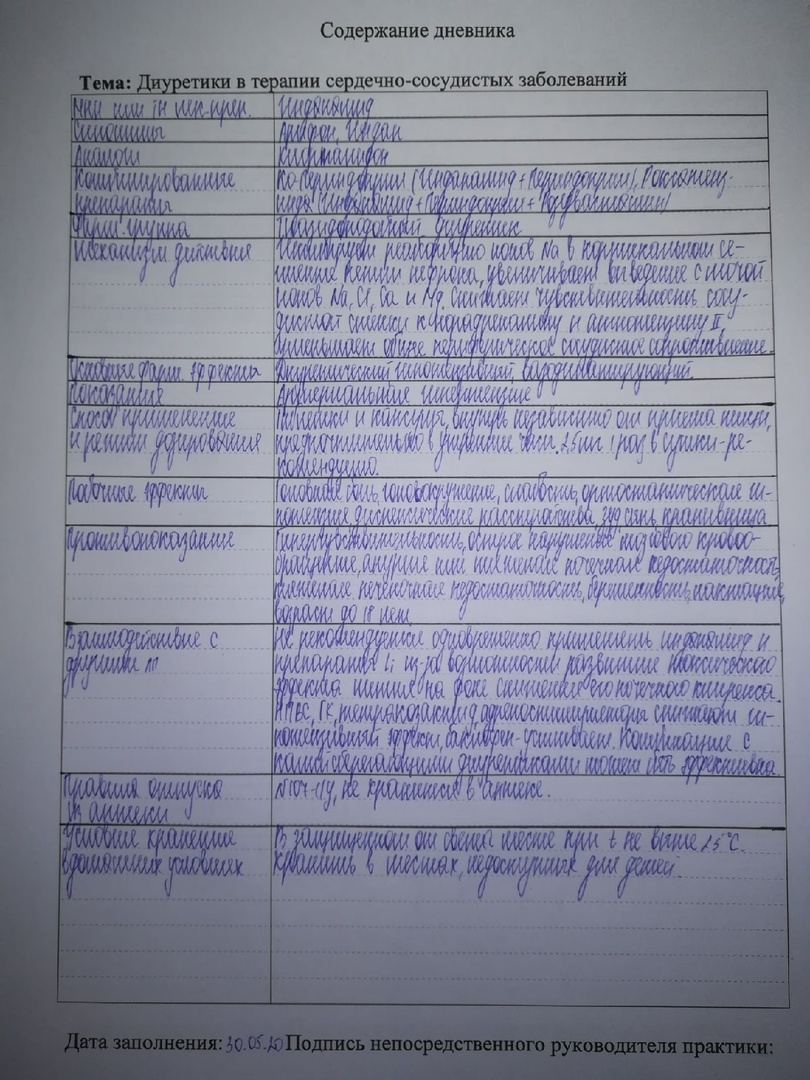 Содержание дневника
Тема: Диуретики в терапии сердечно-сосудистых заболеваний
МНН или ТН лек. преп. Индапамид
Синонимы Арифон, Индап
Аналоги
Комбинированные Ко-Периндоприл (Индапамид+Периндоприл),
препараты (Индапамид+Периндоприл+Розувастатин)
Фарм. группа Тиазидоподобный диуретик
Механизм действия Ингибирует реабсорбцию ионов Na в кортикальном се-
гменте петли нефрона, увеличивает выведение с мочой
ионов Na, Cl, Ca и Mg. Снижает чувствительность сосу-
дистой стенки к норадреналину и ангиотензину II,
уменьшает общее периферическое сосудистое сопротивление.
Основные фарм. эффекты Диуретический, гипотензивный, вазодилатирующий.
Показания Артериальная гипертензия
Способ применения Таблетки и капсулы, внутрь независимо от приема пищи,
и режим дозирования предпочтительно в утренние часы. 2,5мг 1 раз в сутки-ре-
комендуемо.
Побочные эффекты Головная боль, головокружение, слабость, ортостатическая ги-
потензия, диспепсические расстройства, крапивница
Противопоказания Гиперчувствительность, острое нарушение мозгового крово-
обращения, анурия или тяжелая почечная недостаточность,
тяжелая печеночная недостаточность, беременность, лактация,
возраст до 18 лет.
Взаимодействие с Не рекомендуется одновременно применять индапамид и
другими препараты Li из-за возможности развития токсического
эффекта лития на фоне снижения его почечного клиренса.
НПВС, ГК, тетракозактид, адреностимуляторы снижают ги-
потензивный эффект, баклофен-усиливает. Комбинация с
калийсберегающими диуретиками может быть эффективна.
Правила отпуска №107-1/у, не хранится в аптеке.
из аптеки
Условия хранения В защищенном от света месте при t не выше 25°С.
в домашних условиях Хранить в местах, недоступных для детей.
Дата заполнения: 30.05.20 Подпись непосредственного руководителя практики: